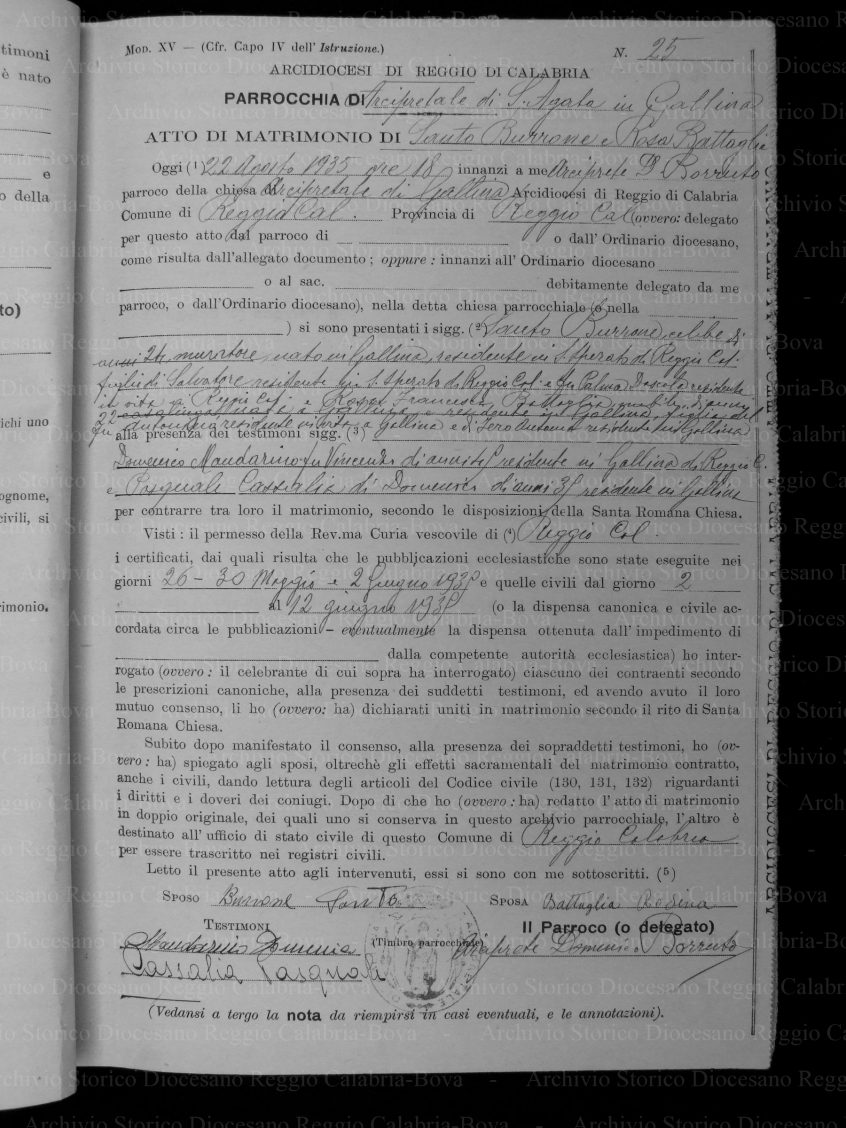 Mod. XV — (Cfr. Capo IV dell' Istruzione.) N. 25
ARCIDIOCESI DI REGGIO DI CALABRIA
PARROCCHIA DI Arcipretale di S. Agata in Gallina
ATTO DI MATRIMONIO DI Santo Burrone e Rosa Battaglia
Oggi (¹) 22 Agosto 1935 ore 18 innanzi a me Arciprete D. Borruto
parroco della chiesa di Arcipretale di Gallina Arcidiocesi di Reggio di Calabria
Comune di Reggio Cal. Provincia di Reggio Cal. ovvero: delegato
per questo atto dal parroco di o dall' Ordinario diocesano,
come risulta dall'allegato documento ; oppure : innanzi all' Ordinario diocesano
o al sac. debitamente delegato da me
parroco, o dall'Ordinario diocesano), nella detta chiesa parrocchiale (o nella
) si sono presentati i sigg. (² Santo Burrone celibe di
anni 24 muratore nato in Gallina residente in S. Sperato di Reggio Cal.
figlio di Salvatore residente in S. Sperato di Reggio Cal. e fu residente
in vita a Reggio Cal. e Rosa Francesca Battaglia nubile di anni
22 casalinga nata a Gallina e residente in Gallina figlia del
fu Antonino residente in vita a Gallina e di residente in Gallina
alla presenza dei testimoni sigg. (³)
Domenico Mandarino fu Vincenzo di anni residente in Gallina di Reggio C.
e Pasquale Cassalia di Domenico di anni 35 residente in Gallina
per contrarre tra loro il matrimonio, secondo le disposizioni della Santa Romana Chiesa.
Visti : il permesso della Rev.ma Curia vescovile di (⁴) Reggio Cal.
i certificati, dai quali risulta che le pubblicazioni ecclesiastiche sono state eseguite nei
giorni 26 - 30 Maggio e 2 Giugno 1935 e quelle civili dal giorno 2
al 12 giugno 1935 (o la dispensa canonica e civile ac-
cordata circa le pubblicazioni – eventualmente la dispensa ottenuta dall' impedimento di
dalla competente autorità ecclesiastica) ho inter-
rogato (ovvero : il celebrante di cui sopra ha interrogato) ciascuno dei contraenti secondo
le prescrizioni canoniche, alla presenza dei suddetti testimoni, ed avendo avuto il loro
mutuo consenso, li ho (ovvero: ha) dichiarati uniti in matrimonio secondo il rito di Santa
Romana Chiesa.
Subito dopo manifestato il consenso, alla presenza dei sopraddetti testimoni, ho (ov-
vero : ha) spiegato agli sposi, oltrechè gli effetti sacramentali del matrimonio contratto,
anche i civili, dando lettura degli articoli del Codice civile (130, 131, 132) riguardanti
i diritti e i doveri dei coniugi. Dopo di che ho (ovvero : ha) redatto l' atto di matrimonio
in doppio originale, dei quali uno si conserva in questo archivio parrocchiale, l'altro è
destinato all' ufficio di stato civile di questo Comune di Reggio Calabria
per essere trascritto nei registri civili.
Letto il presente atto agli intervenuti, essi si sono con me sottoscritti. (⁵)
SPOSO Burrone Santo SPOSA Battaglia Rosina
TESTIMONI Il Parroco (o delegato)
Mandarino Domenico (Timbro parrocchiale) Arciprete Domenico Borruto
Cassalia Pasquale
(Vedansi a tergo la nota da riempirsi in casi eventuali, e le annotazioni).
timoni
è nato
e
o della
to)
ichi uno
ognome,
civili, si
rimonio.
ARCIDIOCESI DI REGGIO DI CALABRIA
Archivio Storico Diocesano Reggio Calabria-Bova